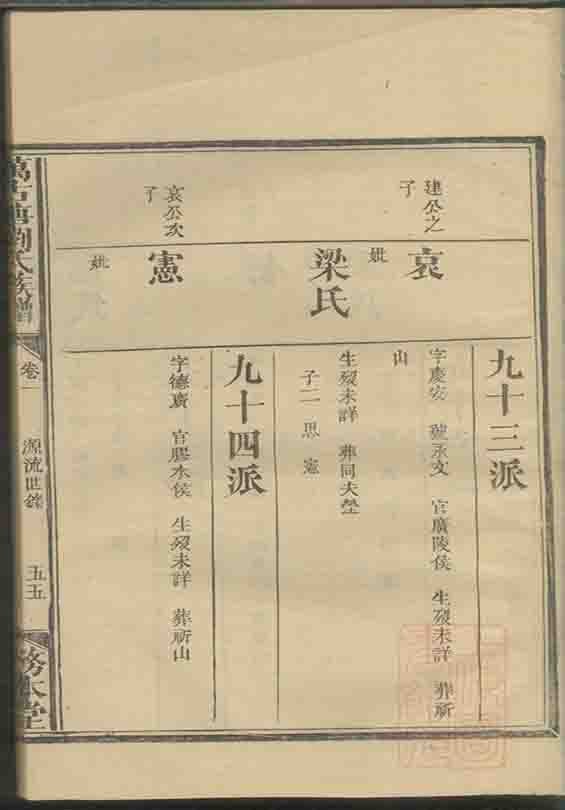 九十三派
建公之
子
哀
字慶安 號永文 官廣陵侯 生殁未詳 葬祈
山
妣
梁氏
生殁未詳 葬同夫塋
子二 思 憲
九十四派
哀公次
子
憲
字德廣 官膠水侯 生殁未詳 葬祈山
妣
劉氏族譜
卷一
源流世錄
五五
務本堂